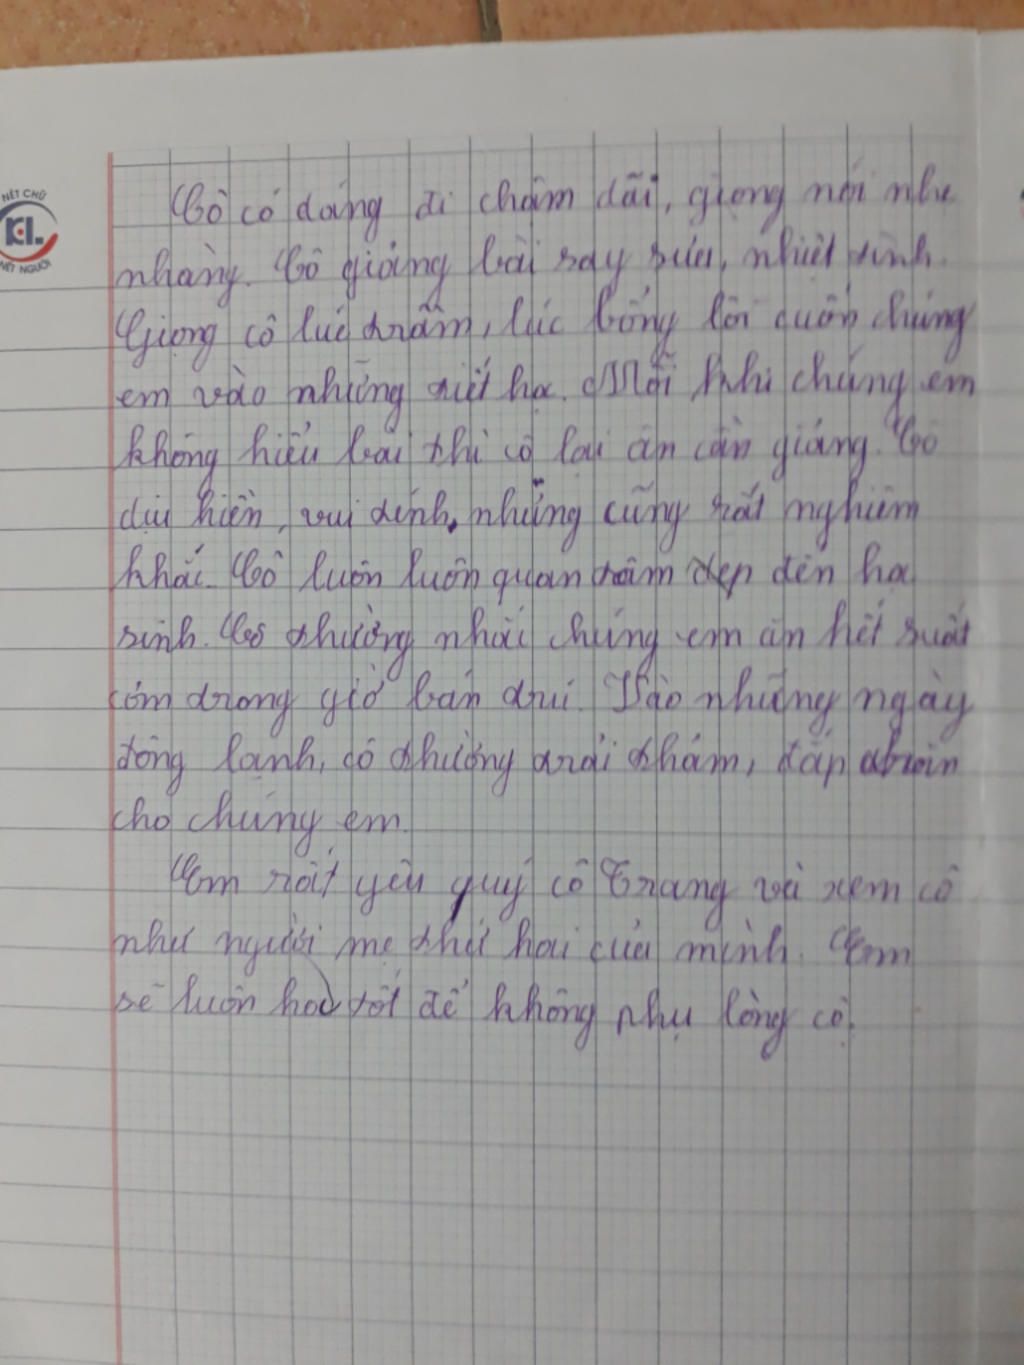 NÉT CHỮ
KL
NẾT NGƯỜI
Cô có dáng đi chậm dãi, giọng nói nhẹ
nhàng. Cô giảng bài say sưa, nhiệt tình.
Giọng cô lúc trầm, lúc bổng lôi cuốn chúng
em vào những tiết học. Mỗi khi chúng em
không hiểu bài thì cô lại ân cần giảng. Cô
dịu hiền, vui tính, nhưng cũng rất nghiêm
khắc. Cô luôn luôn quan tâm đến học
sinh. Cô thường nhắc chúng em ăn hết suất
cơm trong giờ bán trú. Vào những ngày
đông lạnh, cô thường trải thảm, đắp
cho chúng em.
Em rất yêu quý cô Trang và xem cô
như người mẹ thứ hai của mình. Em
sẽ luôn học tốt để không phụ lòng cô.